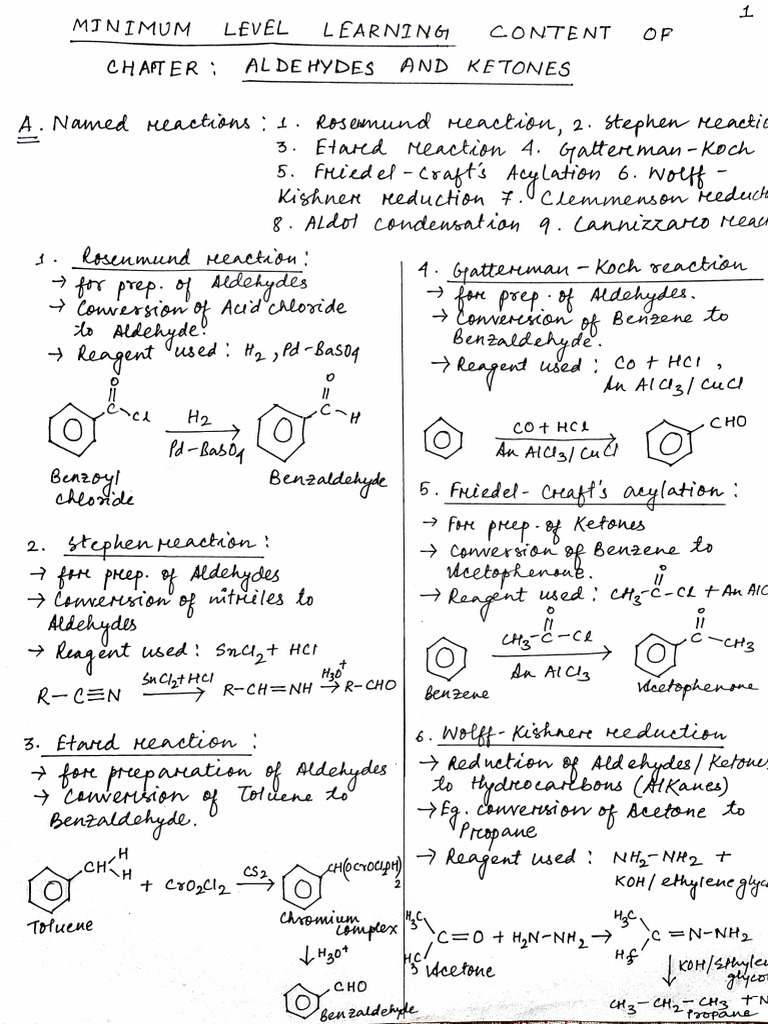 1
MINIMUM LEVEL LEARNING CONTENT OF
CHAPTER: ALDEHYDES AND KETONES
A. Named reactions: 1. Rosenmund reaction, 2. Stephen reactio
3. Etard reaction 4. Gatterman-Koch
5. Friedel-Craft's Acylation 6. Wolff-
Kishner reduction 7. Clemmenson reduct
8. Aldol condensation 9. Cannizzaro reac
1. Rosenmund reaction:
→ for prep. of Aldehydes
→ Conversion of Acid chloride
to Aldehyde.
→ Reagent used: H2, Pd-BaSO4
O
C Cl
H2
Pd-BaSO4
O
C-H
Benzoyl
chloride
Benzaldehyde
2. Stephen reaction:
→ for prep. of Aldehydes
→ Conversion of nitriles to
Aldehydes
→ Reagent used: SnCl2 + HCl
R-C≡N SnCl2+HCl → R-CH=NH H3O+ → R-CHO
3. Etard reaction:
→ for preparation of Aldehydes
→ Conversion of Toluene to
Benzaldehyde.
CH H H + CrO2Cl2 CS2 → CH(OCrOCl2OH)2
Toluene
Chromium
complex
↓ H3O+
CHO
Benzaldehyde
4. Gatterman-Koch reaction
→ for prep. of Aldehydes.
→ Conversion of Benzene to
Benzaldehyde.
→ Reagent used: CO + HCl,
An AlCl3/CuCl
CO + HCl
An AlCl3/CuCl
CHO
5. Friedel-Craft's acylation:
→ For prep. of Ketones
→ Conversion of Benzene to
Acetophenone.
O
→ Reagent used: CH3-C-Cl + An AlC
O
CH3-C-Cl
An AlCl3
O
C-CH3
Benzene
Acetophenone
6. Wolff-Kishner reduction
→ Reduction of Aldehydes/Ketones
to Hydrocarbons (Alkanes)
→ Eg. conversion of Acetone to
Propane
→ Reagent used: NH2-NH2 +
KOH/ethylene glyco
H3C H3C C=O + H2N-NH2 → H3C H3C C=N-NH2
Acetone
↓ KOH/Ethylen
glycol
CH3-CH2-CH3 + N
Propane